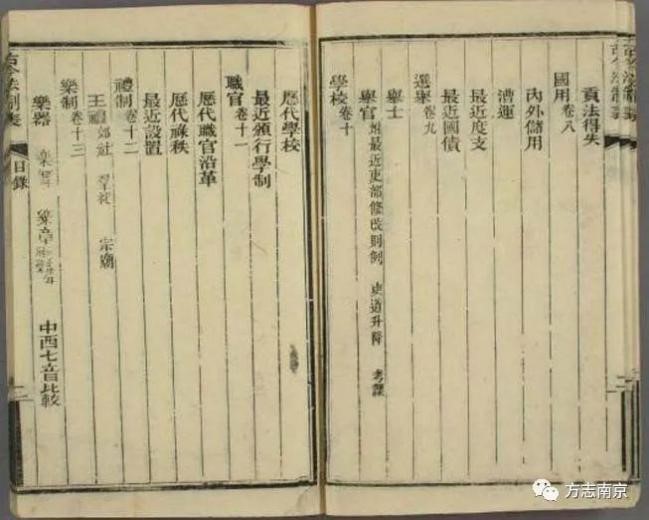 古今法制表
貢法得失
國用 卷八
內外儲用
漕運
最近度支
最近國債
選舉 卷九
舉士
舉官 附最近吏部修改則例 吏道升降 考課
學校 卷十
歷代學校
最近頒行學制
職官 卷十一
歷代職官沿革
歷代祿秩
最近設置
禮制 卷十二
王禮 郊社 羣祀 宗廟
樂制 卷十三
樂器 樂章 中西七音比較
古今法制表 目錄 二
方志南京